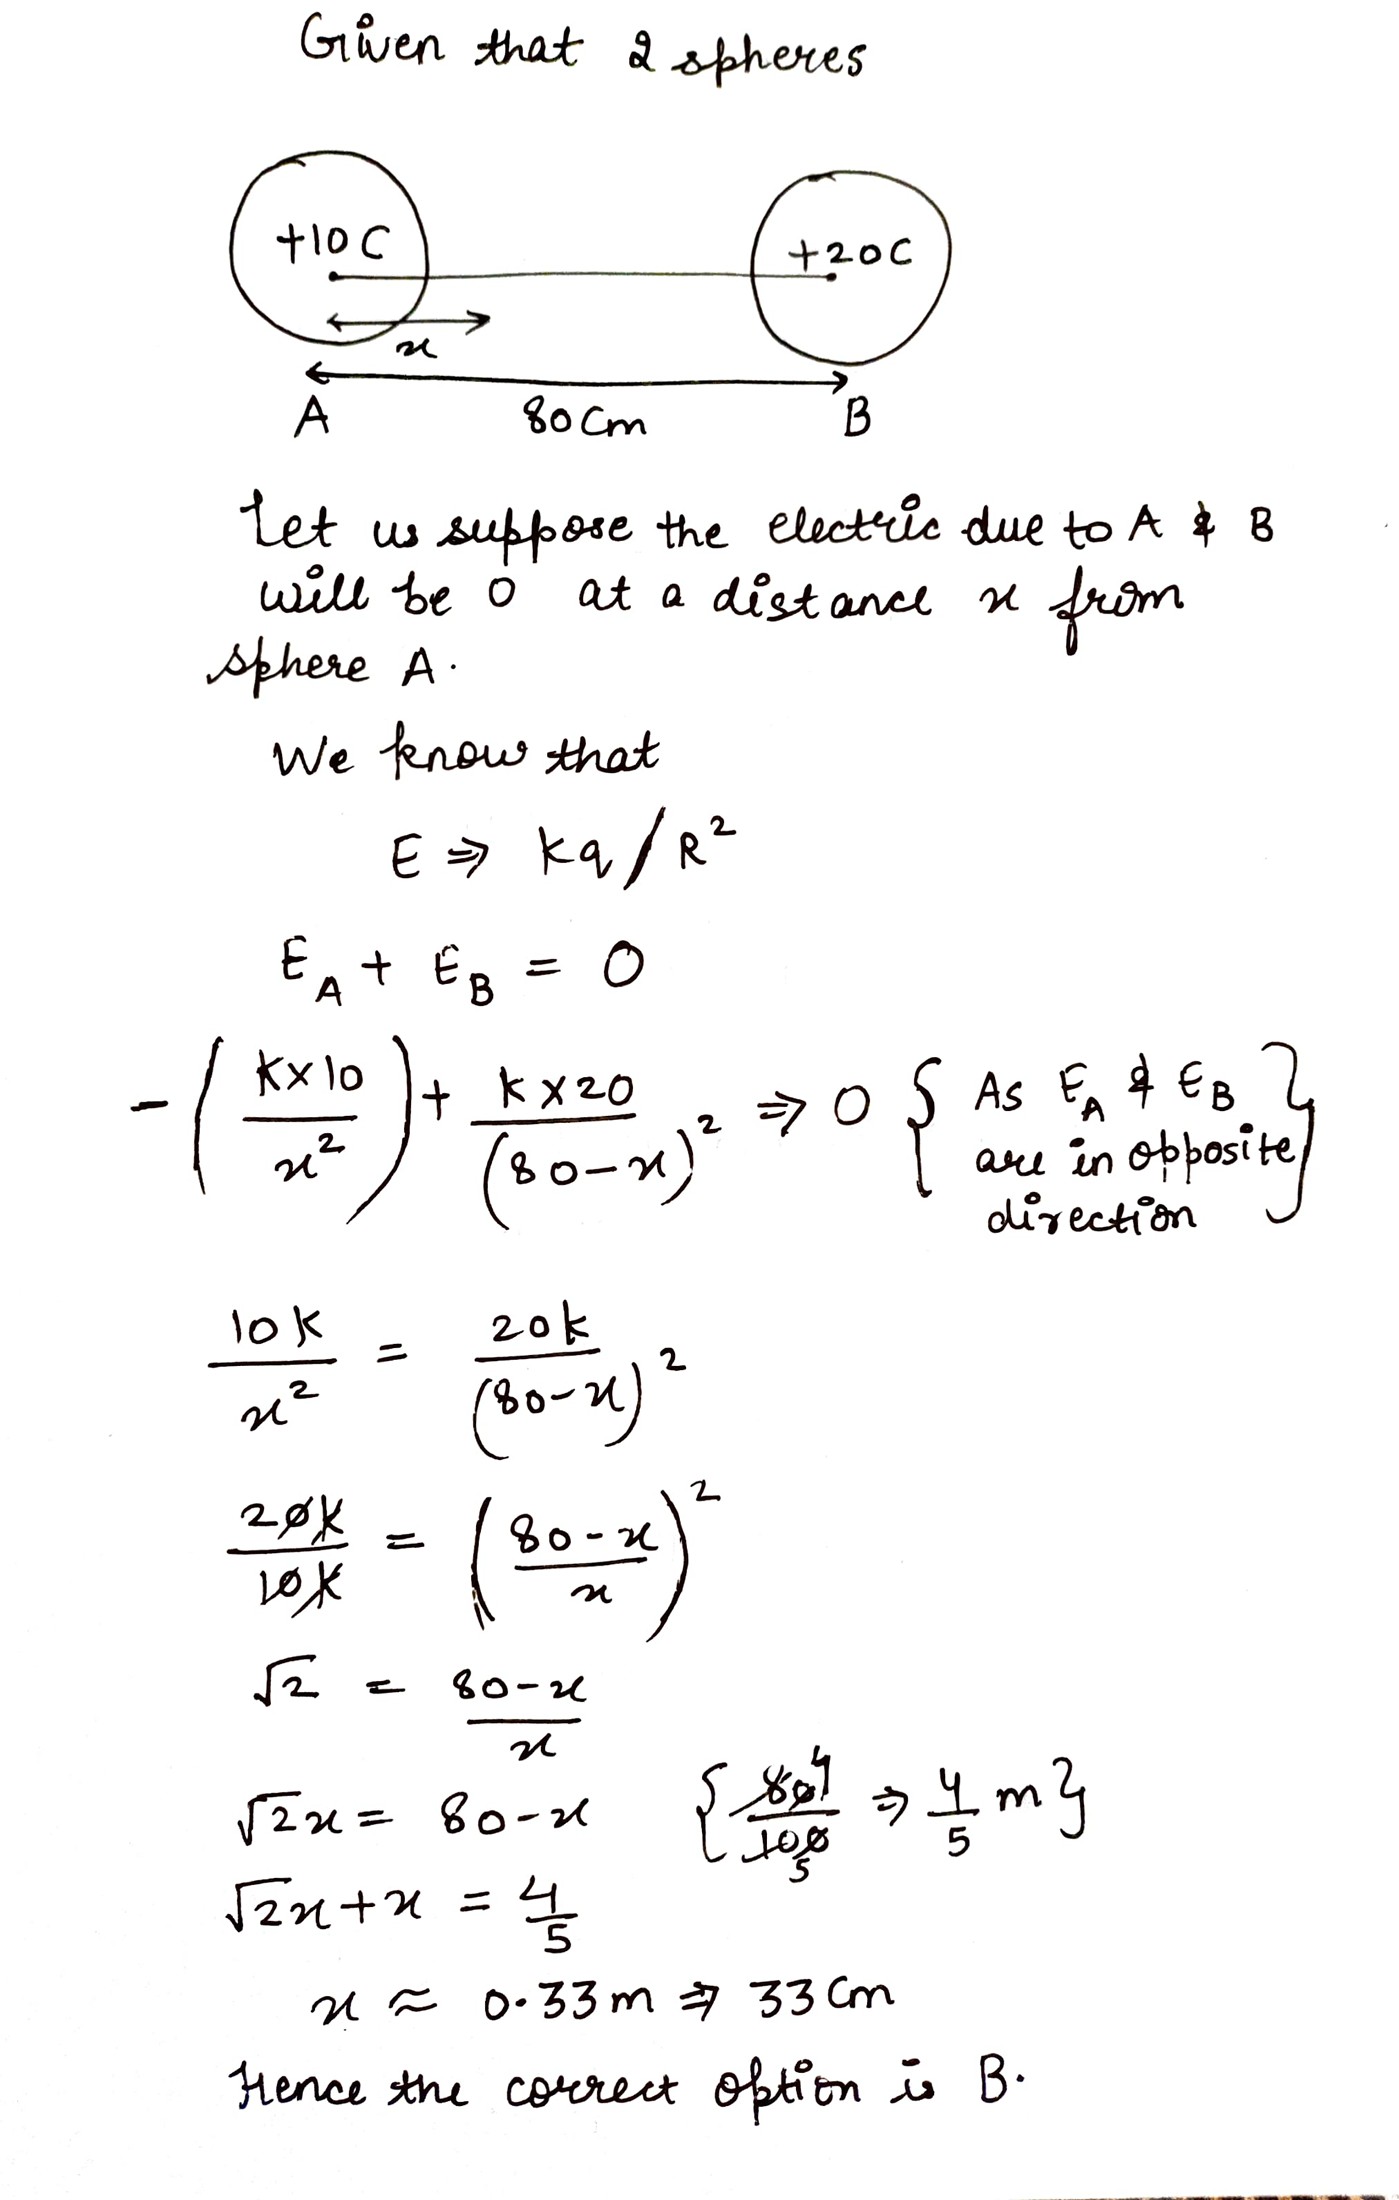 Given that 2 spheres
+10 C
+20 C
x
A 80 Cm B
Let us suppose the electric due to A & B
will be 0 at a distance x from
sphere A.
We know that
E ⇒ Kq / R²
E_A + E_B = 0
-(K×10 / x²) + K×20 / (80-x)² ⇒ 0 { As E_A & E_B are in opposite direction }
10K / x² = 20K / (80-x)²
20K / 10K = (80-x / x)²
√2 = 80-x / x
√2x = 80-x { 80 4 / 100 5 ⇒ 4/5 m }
√2x + x = 4/5
x ≈ 0.33m ⇒ 33 Cm
Hence the correct option is B.